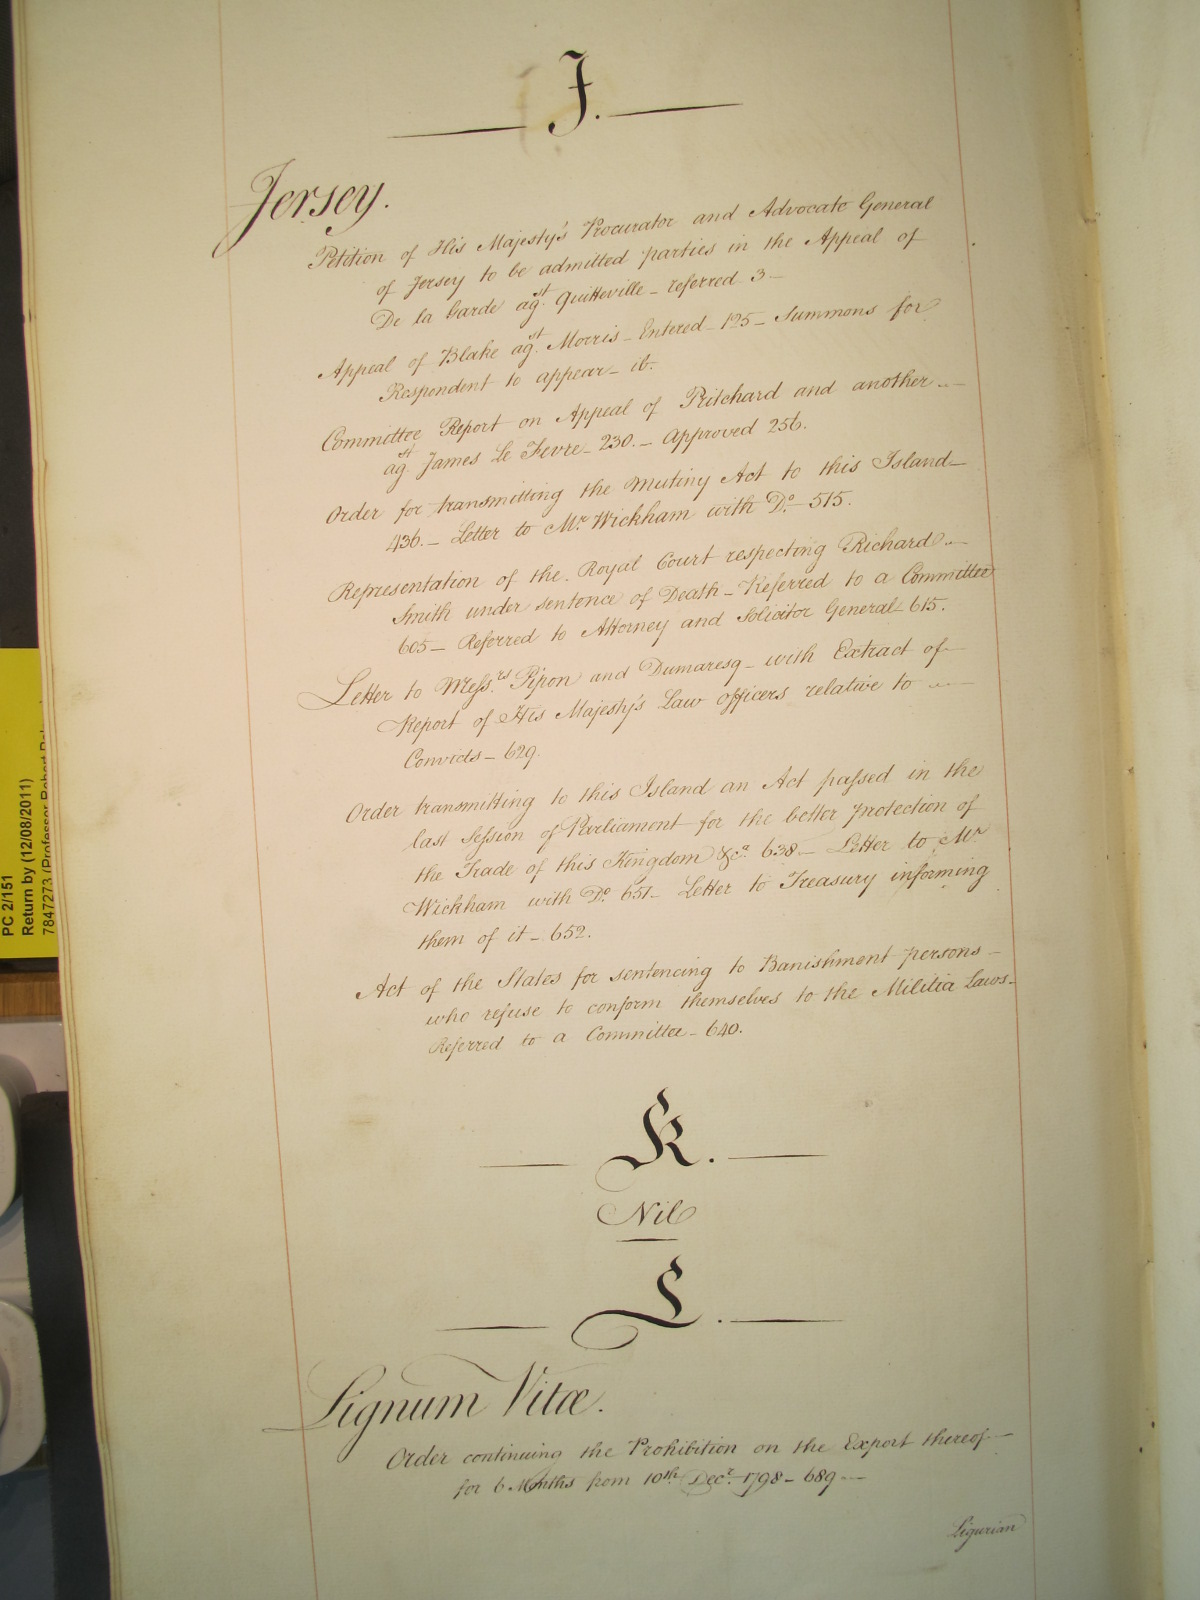 J.
Jersey.
Petition of His Majesty's Procurator and Advocate General
of Jersey to be admitted parties in the Appeal of
De la Garde agst. Quitteville – referred 3 –
Appeal of Blake agst. Morris – Entered – 125 – Summons for
Respondent to appear – ib.
Committee Report on Appeal of Pritchard and another
agst. James Le Fevre – 230. – Approved 256.
Order for transmitting the Mutiny Act to this Island –
436. – Letter to Mr. Wickham with Do. – 515.
Representation of the Royal Court respecting Richard
Smith under sentence of Death – Referred to a Committee
605 – Referred to Attorney and Solicitor General – 615.
Letter to Messrs. Pipon and Dumaresq – with Extract of
Report of His Majesty's Law officers relative to
Convicts – 629.
Order transmitting to this Island an Act passed in the
last Session of Parliament for the better protection of
the Trade of this Kingdom &ca. 638 – Letter to Mr
Wickham with Do. 651 – Letter to Treasury informing
them of it – 652.
Act of the States for sentencing to Banishment persons –
who refuse to conform themselves to the Militia Laws –
Referred to a Committee – 640.
K.
Nil
L.
Lignum Vitæ.
Order continuing the Prohibition on the Export thereof –
for 6 Months from 10th. Decr. 1798 – 689 –
Ligurian
PC 2/151
Return by (12/08/2011)
7847273 (Professor Robert